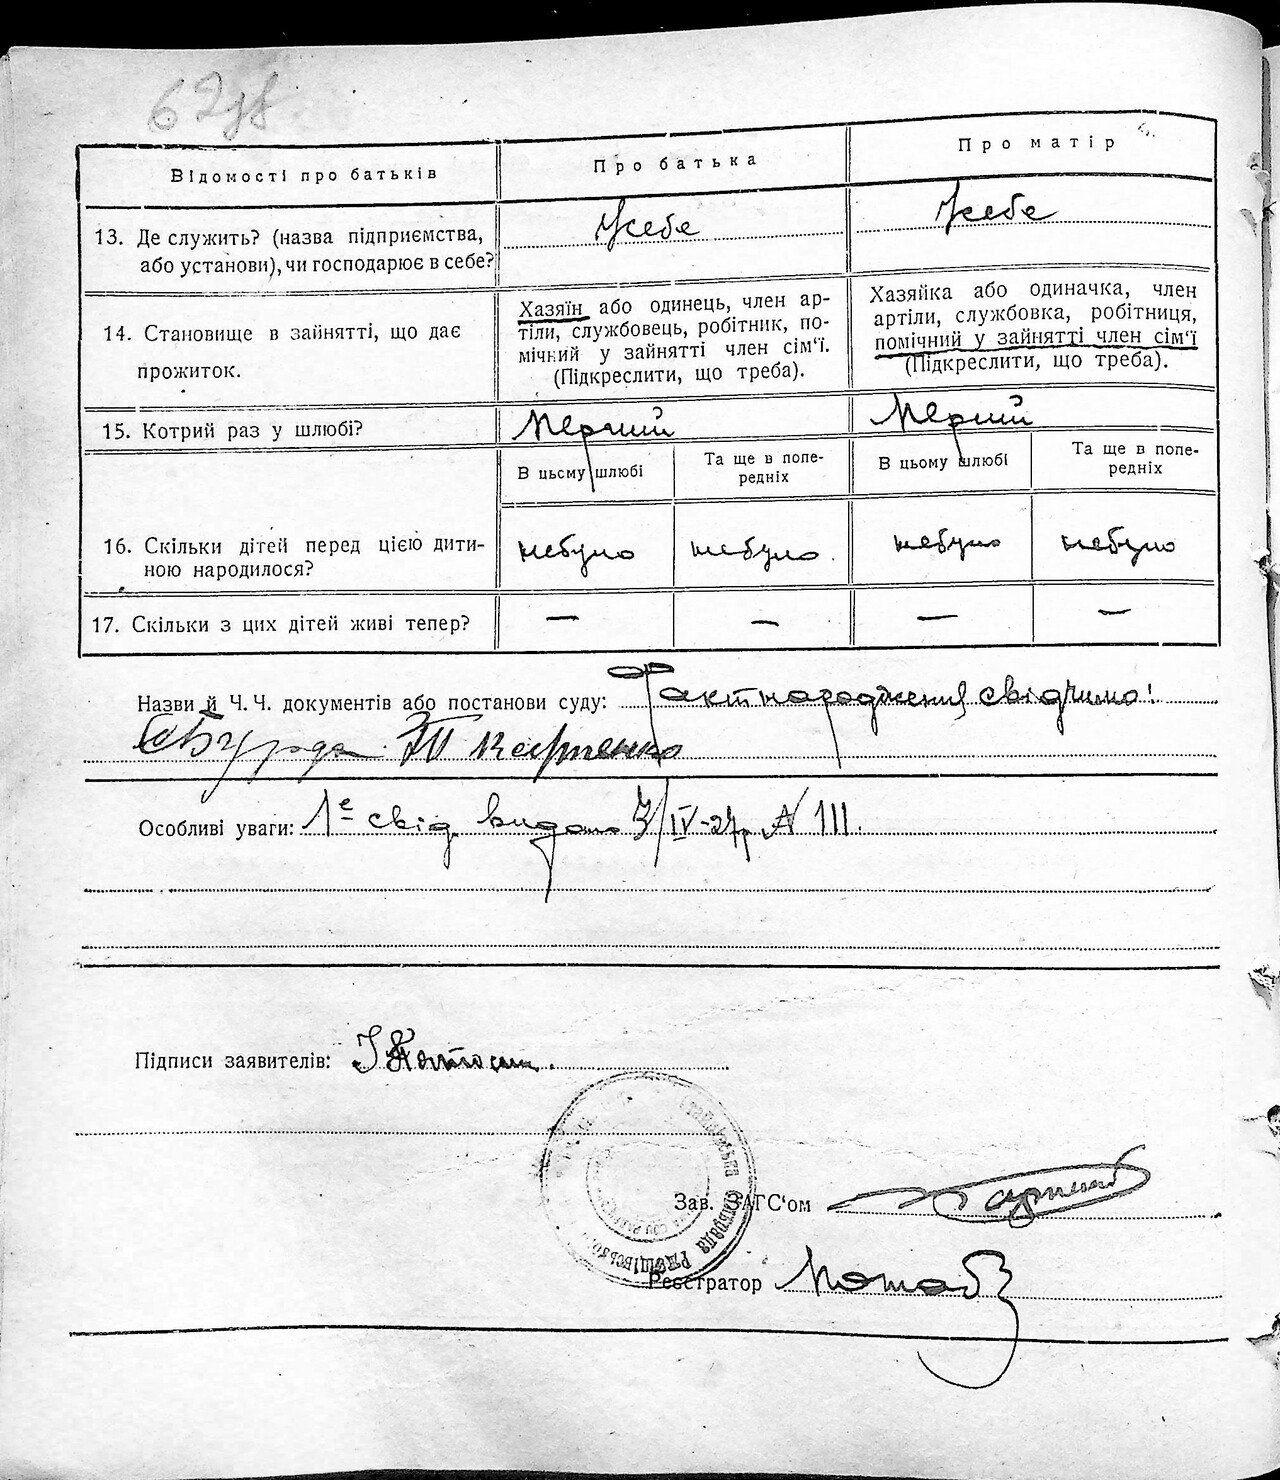 62зв
Відомості про батьків
Про батька
Про матір
13. Де служить? (назва підприємства,
або установи), чи господарює в себе?
Усебе
Усебе
14. Становище в зайнятті, що дає
прожиток.
Хазяїн або одинець, член ар-
тіли, службовець, робітник, по-
мічний у зайнятті член сім'ї.
(Підкреслити, що треба).
Хазяйка або одиначка, член
артіли, службовка, робітниця,
помічний у зайнятті член сім'ї
(Підкреслити, що треба).
15. Котрий раз у шлюбі?
Перший
Перший
В цьому шлюбі
Та ще в попе-
редніх
В цьому шлюбі
Та ще в попе-
редніх
16. Скільки дітей перед цією дити-
ною народилося?
небуло
небуло
небуло
небуло
17. Скільки з цих дітей живі тепер?
—
—
—
—
Назви й Ч.Ч. документів або постанови суду: Факт народження свідчимо!
Бурда Карпенко
Особливі уваги: 1е свід. видано 3/IV-27р № 111.
Підписи заявителів:
Зав. ЗАГС'ом
Сільрада Ржищівсько
Реєстратор